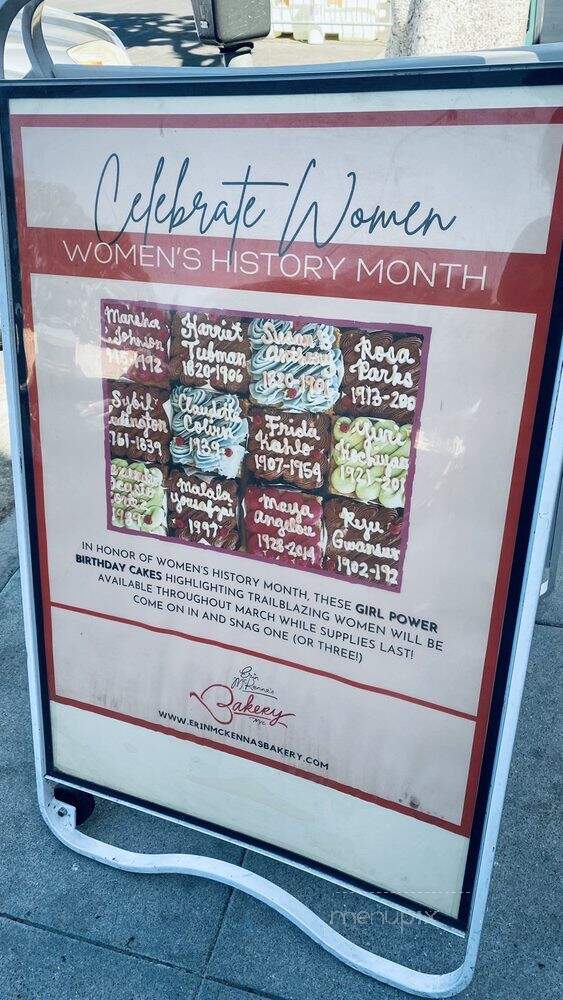 Celebrate Women
WOMEN'S HISTORY MONTH
Marsha
Johnson
Harriet
Tubman
1820-1906
Susan B
Anthony
Rosa
Parks
1913-200
Sybil
761-1839
Claudette
Colvin
1939-
Frida
Kahlo
1907-1954
Yuri
1921-201
1989
Malala
yousafzai
1997
Maya
angelou
1928-2014
1902-192
IN HONOR OF WOMEN'S HISTORY MONTH, THESE GIRL POWER
BIRTHDAY CAKES HIGHLIGHTING TRAILBLAZING WOMEN WILL BE
AVAILABLE THROUGHOUT MARCH WHILE SUPPLIES LAST!
COME ON IN AND SNAG ONE (OR THREE!)
Erin
McKenna's
Bakery
NYC
WWW.ERINMCKENNASBAKERY.COM
menupix